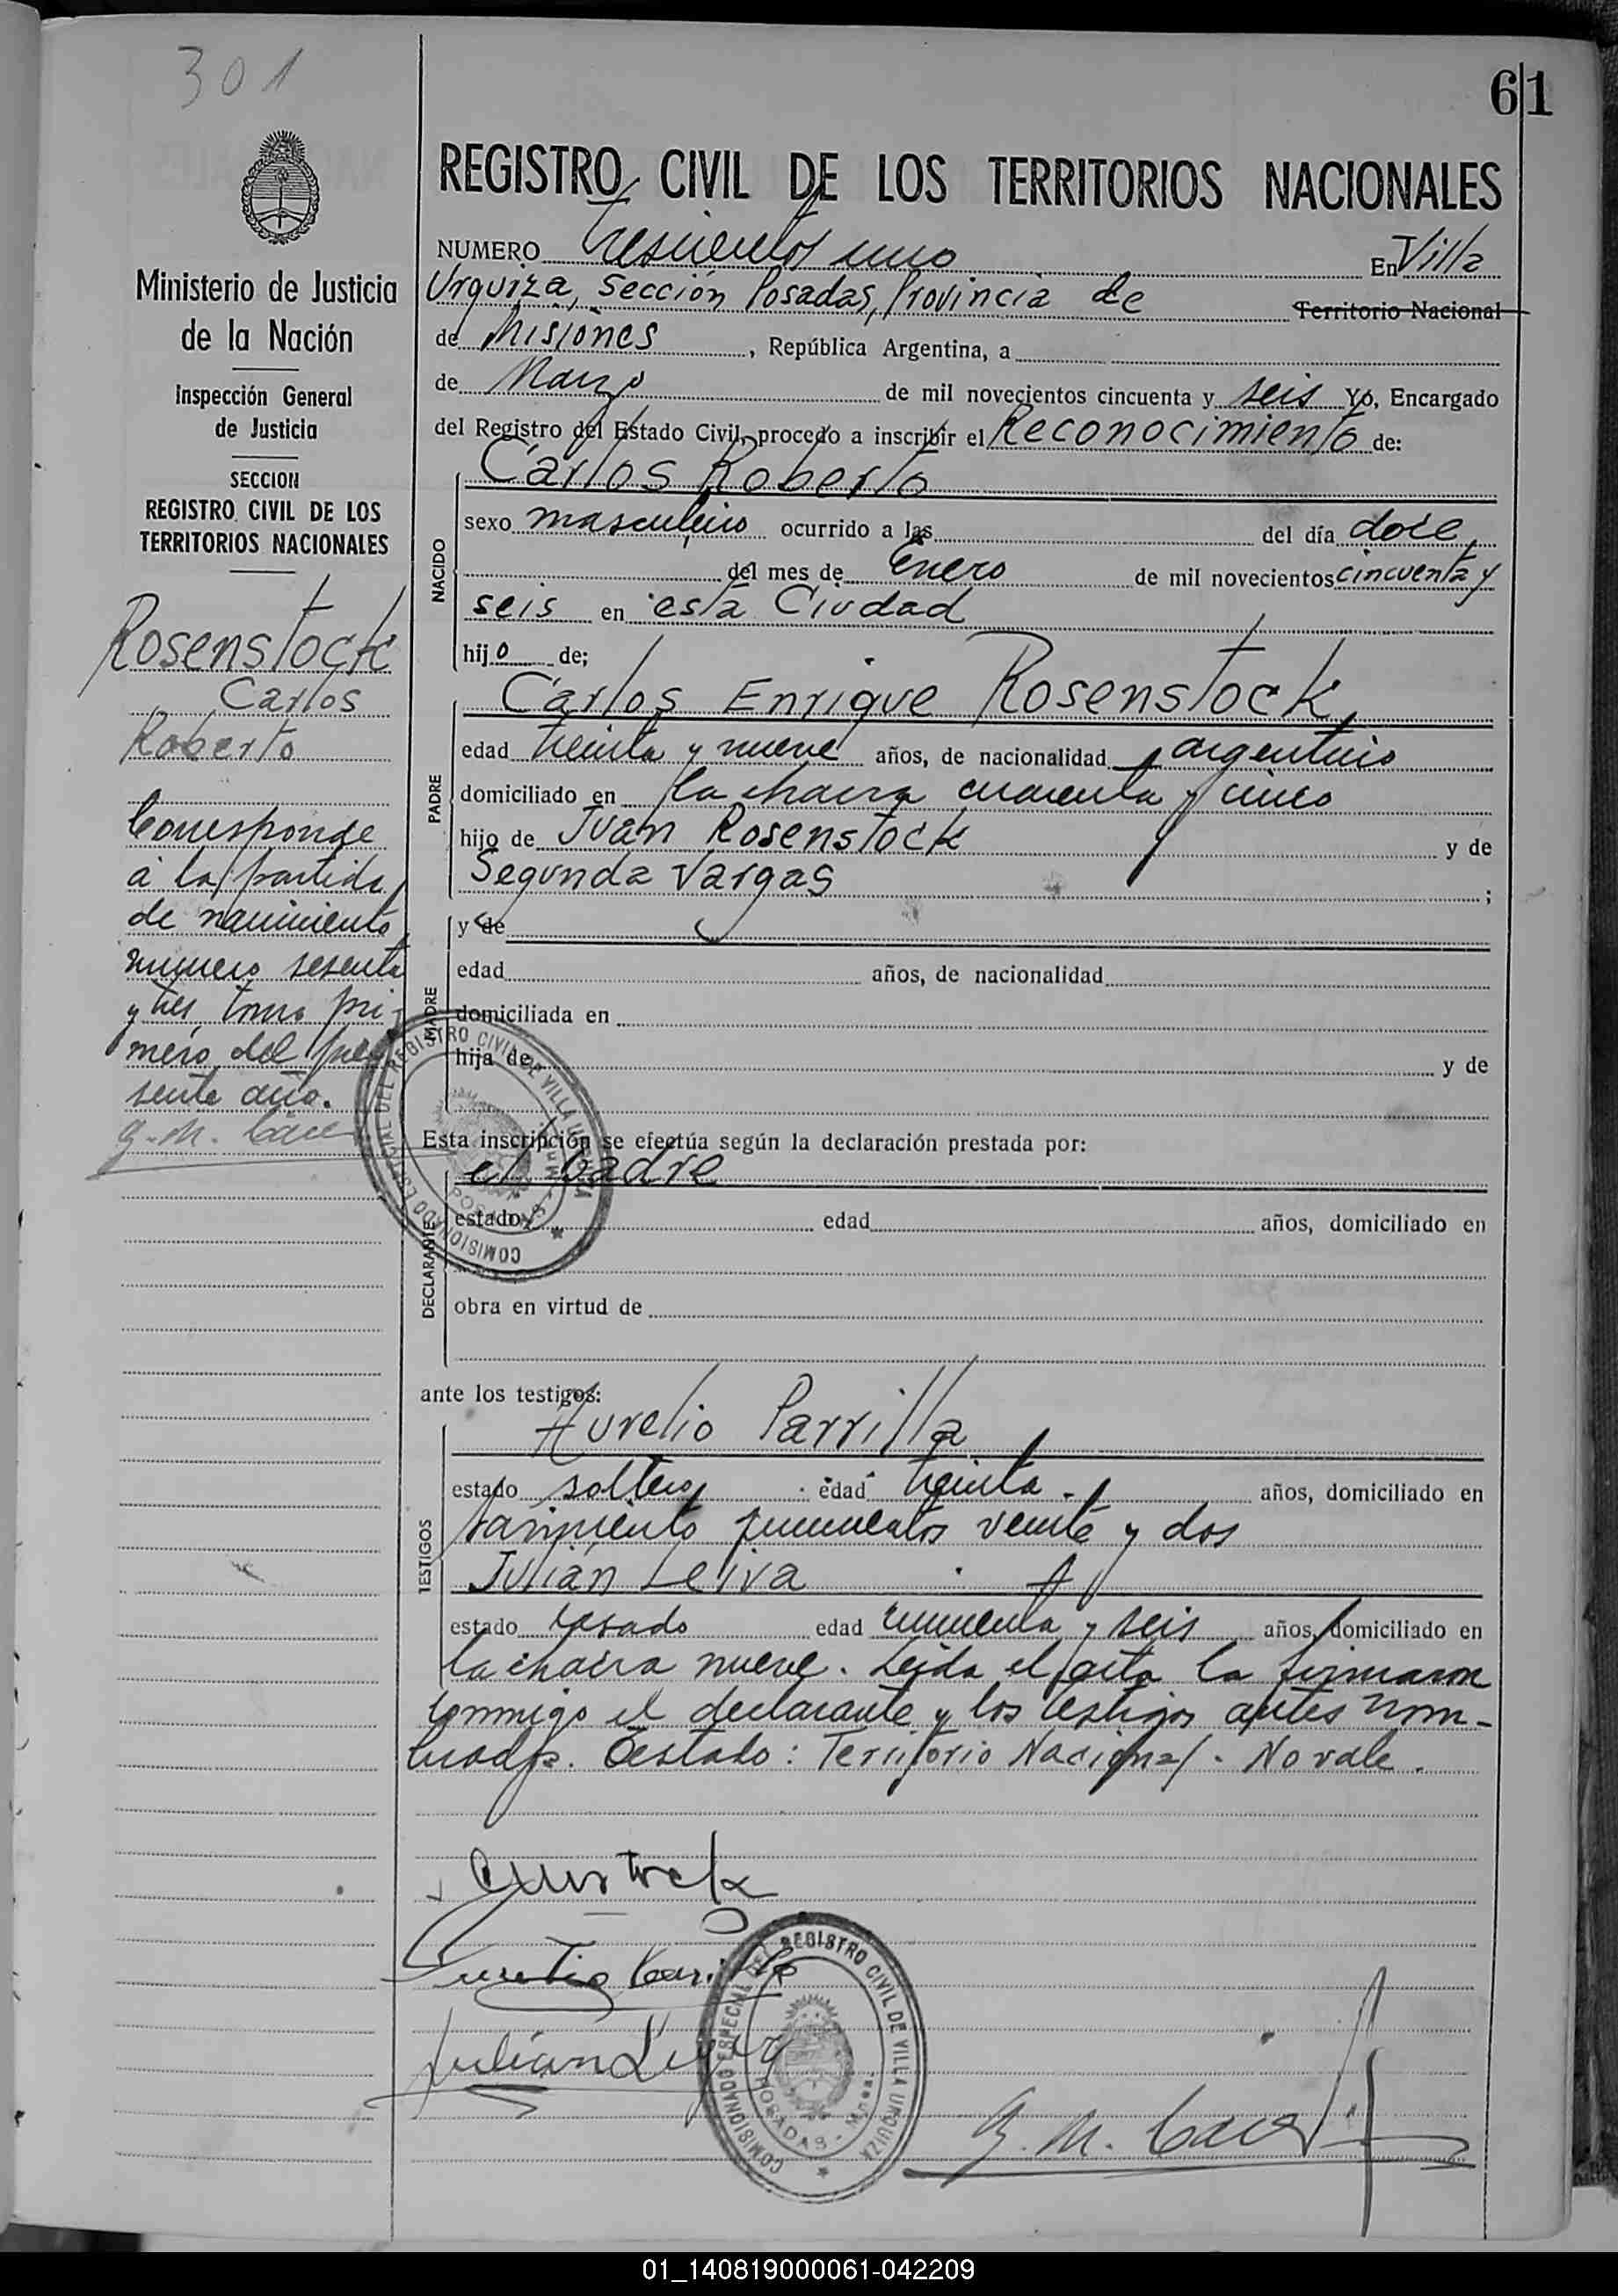 301
61
Ministerio de Justicia
de la Nación
Inspección General
de Justicia
SECCION
REGISTRO CIVIL DE LOS
TERRITORIOS NACIONALES
Rosenstock
Carlos
Roberto
Corresponde
a la partida
de nacimiento
número sesenta
y tres tomo pri-
mero del pre-
sente año.
G. M.
REGISTRO CIVIL DE LOS TERRITORIOS NACIONALES
NUMERO Trescientos uno En Villa
Urquiza, Sección Posadas, Provincia de Territorio Nacional
de Misiones, República Argentina, a
de Marzo de mil novecientos cincuenta y seis Yo, Encargado
del Registro del Estado Civil, procedo a inscribir el Reconocimiento de:
NACIDO
Carlos Roberto
sexo masculino ocurrido a las del día doce
del mes de Enero de mil novecientos cincuenta y
seis en esta Ciudad
hijo de;
PADRE
Carlos Enrique Rosenstock
edad treinta y nueve años, de nacionalidad argentino
domiciliado en la chacra cuarenta y cinco
hijo de Juan Rosenstock y de
Segunda Vargas ;
MADRE
y de
edad años, de nacionalidad
domiciliada en
hija de y de
COMISIONADO ESPECIAL DEL REGISTRO CIVIL DE VILLA URQUIZA
POSADAS - Mnes.
Esta inscripción se efectúa según la declaración prestada por:
DECLARANTE
el padre
estado edad años, domiciliado en
obra en virtud de
ante los testigos:
TESTIGOS
Aurelio Parrilla
estado soltero edad treinta - años, domiciliado en
Sarmiento quinientos veinte y dos
Julián Leiva
estado casado edad cincuenta y seis años, domiciliado en
la chacra nueve. Leida el acta la firmaron
conmigo el declarante y los testigos antes nom-
brados. Testado: Territorio Nacional - No vale.
Julián Leiva
COMISIONADO ESPECIAL DEL REGISTRO CIVIL DE VILLA URQUIZA
POSADAS - Mnes.
G. M.
01_140819000061-042209